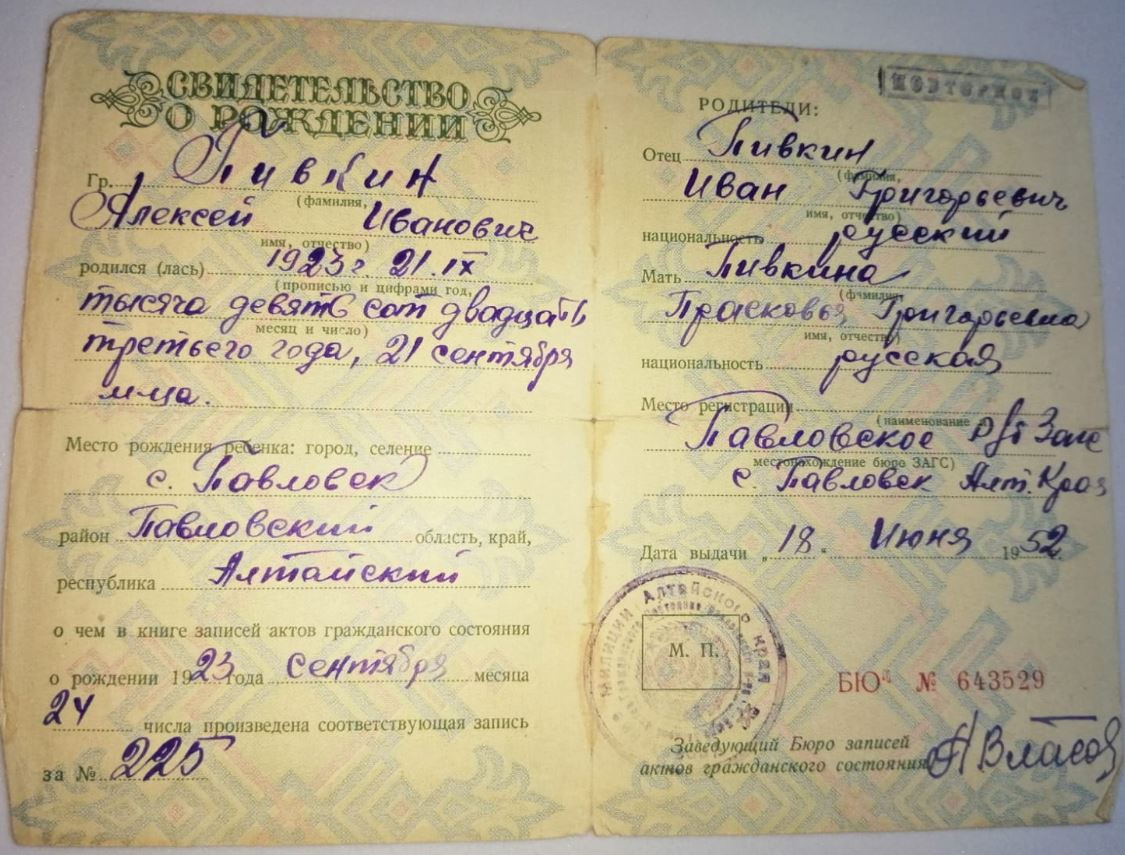 СВИДЕТЕЛЬСТВО
О РОЖДЕНИИ
Гр. Пивкин
(фамилия,
Алексей Иванович
имя, отчество)
родился (лась) 1923 г. 21.IX
(прописью и цифрами год,
тысяча девятьсот двадцать
месяц и число)
третьего года, 21 сентября
м-ца.
Место рождения ребенка: город, селение
с. Павловск
район Павловский область, край,
республика Алтайский
о чем в книге записей актов гражданского состояния
о рождении 1923 года сентября месяца
24 числа произведена соответствующая запись
за № 225
ПОВТОРНОЕ
РОДИТЕЛИ:
Отец Пивкин
(фамилия,
Иван Григорьевич
имя, отчество)
национальность русский
Мать Пивкина
(фамилия,
Прасковья Григорьевна
имя, отчество)
национальность русская
Место регистрации
(наименование и
Павловское Р/б Загс
местонахождение бюро ЗАГС)
с. Павловск Алт. Края
Дата выдачи „18“ Июня 1952
МИЛИЦИИ АЛТАЙСКОГО КРАЯ
М. П.
БЮ № 643529
Заведующий Бюро записей
актов гражданского состояния А Власов